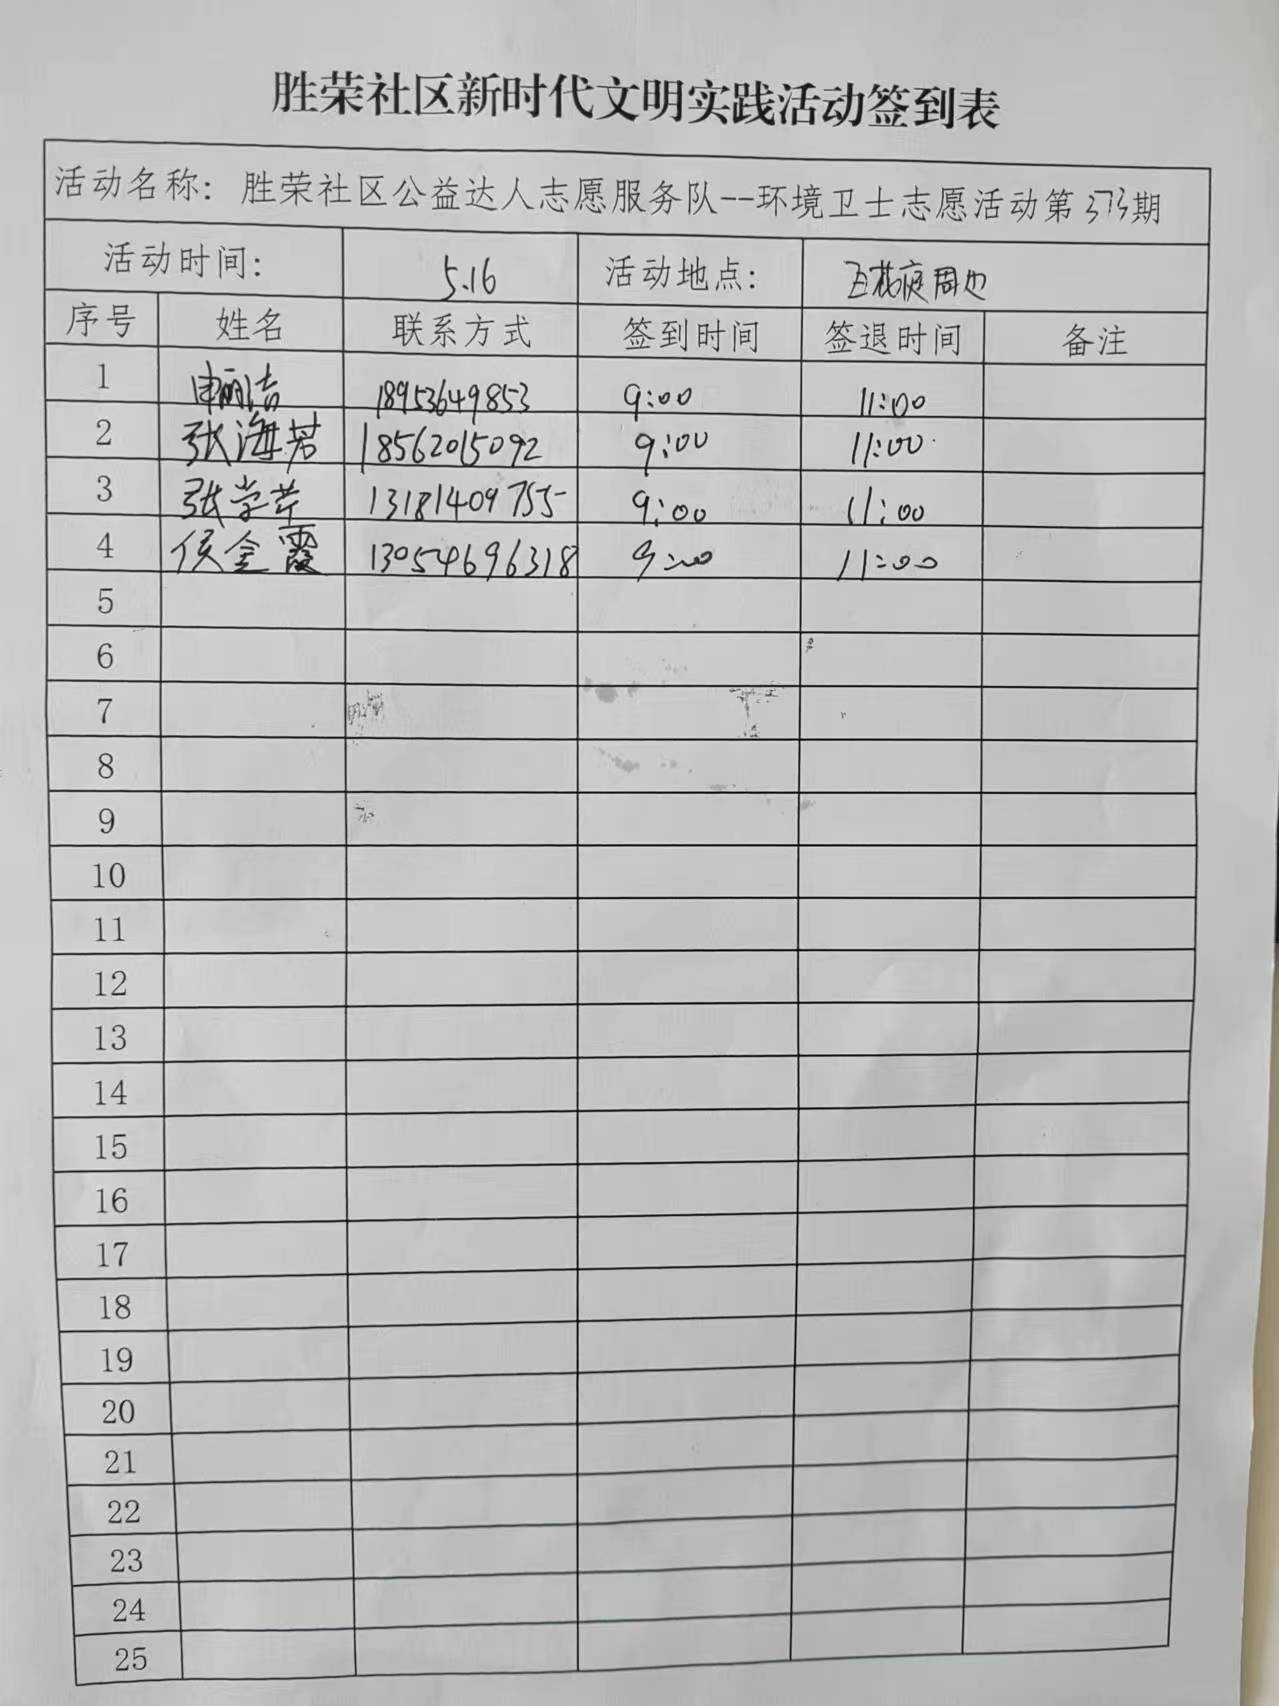 胜荣社区新时代文明实践活动签到表
活动名称：胜荣社区公益达人志愿服务队--环境卫士志愿活动第373期
活动时间： 5.16 活动地点： 百花庭周边
序号 姓名 联系方式 签到时间 签退时间 备注
1 申丽洁 18953649853 9:00 11:00
2 张海若 18562015092 9:00 11:00
3 张学芹 13181409755 9:00 11:00
4 侯金霞 13054696318 9:00 11:00
5
6
7
8
9
10
11
12
13
14
15
16
17
18
19
20
21
22
23
24
25